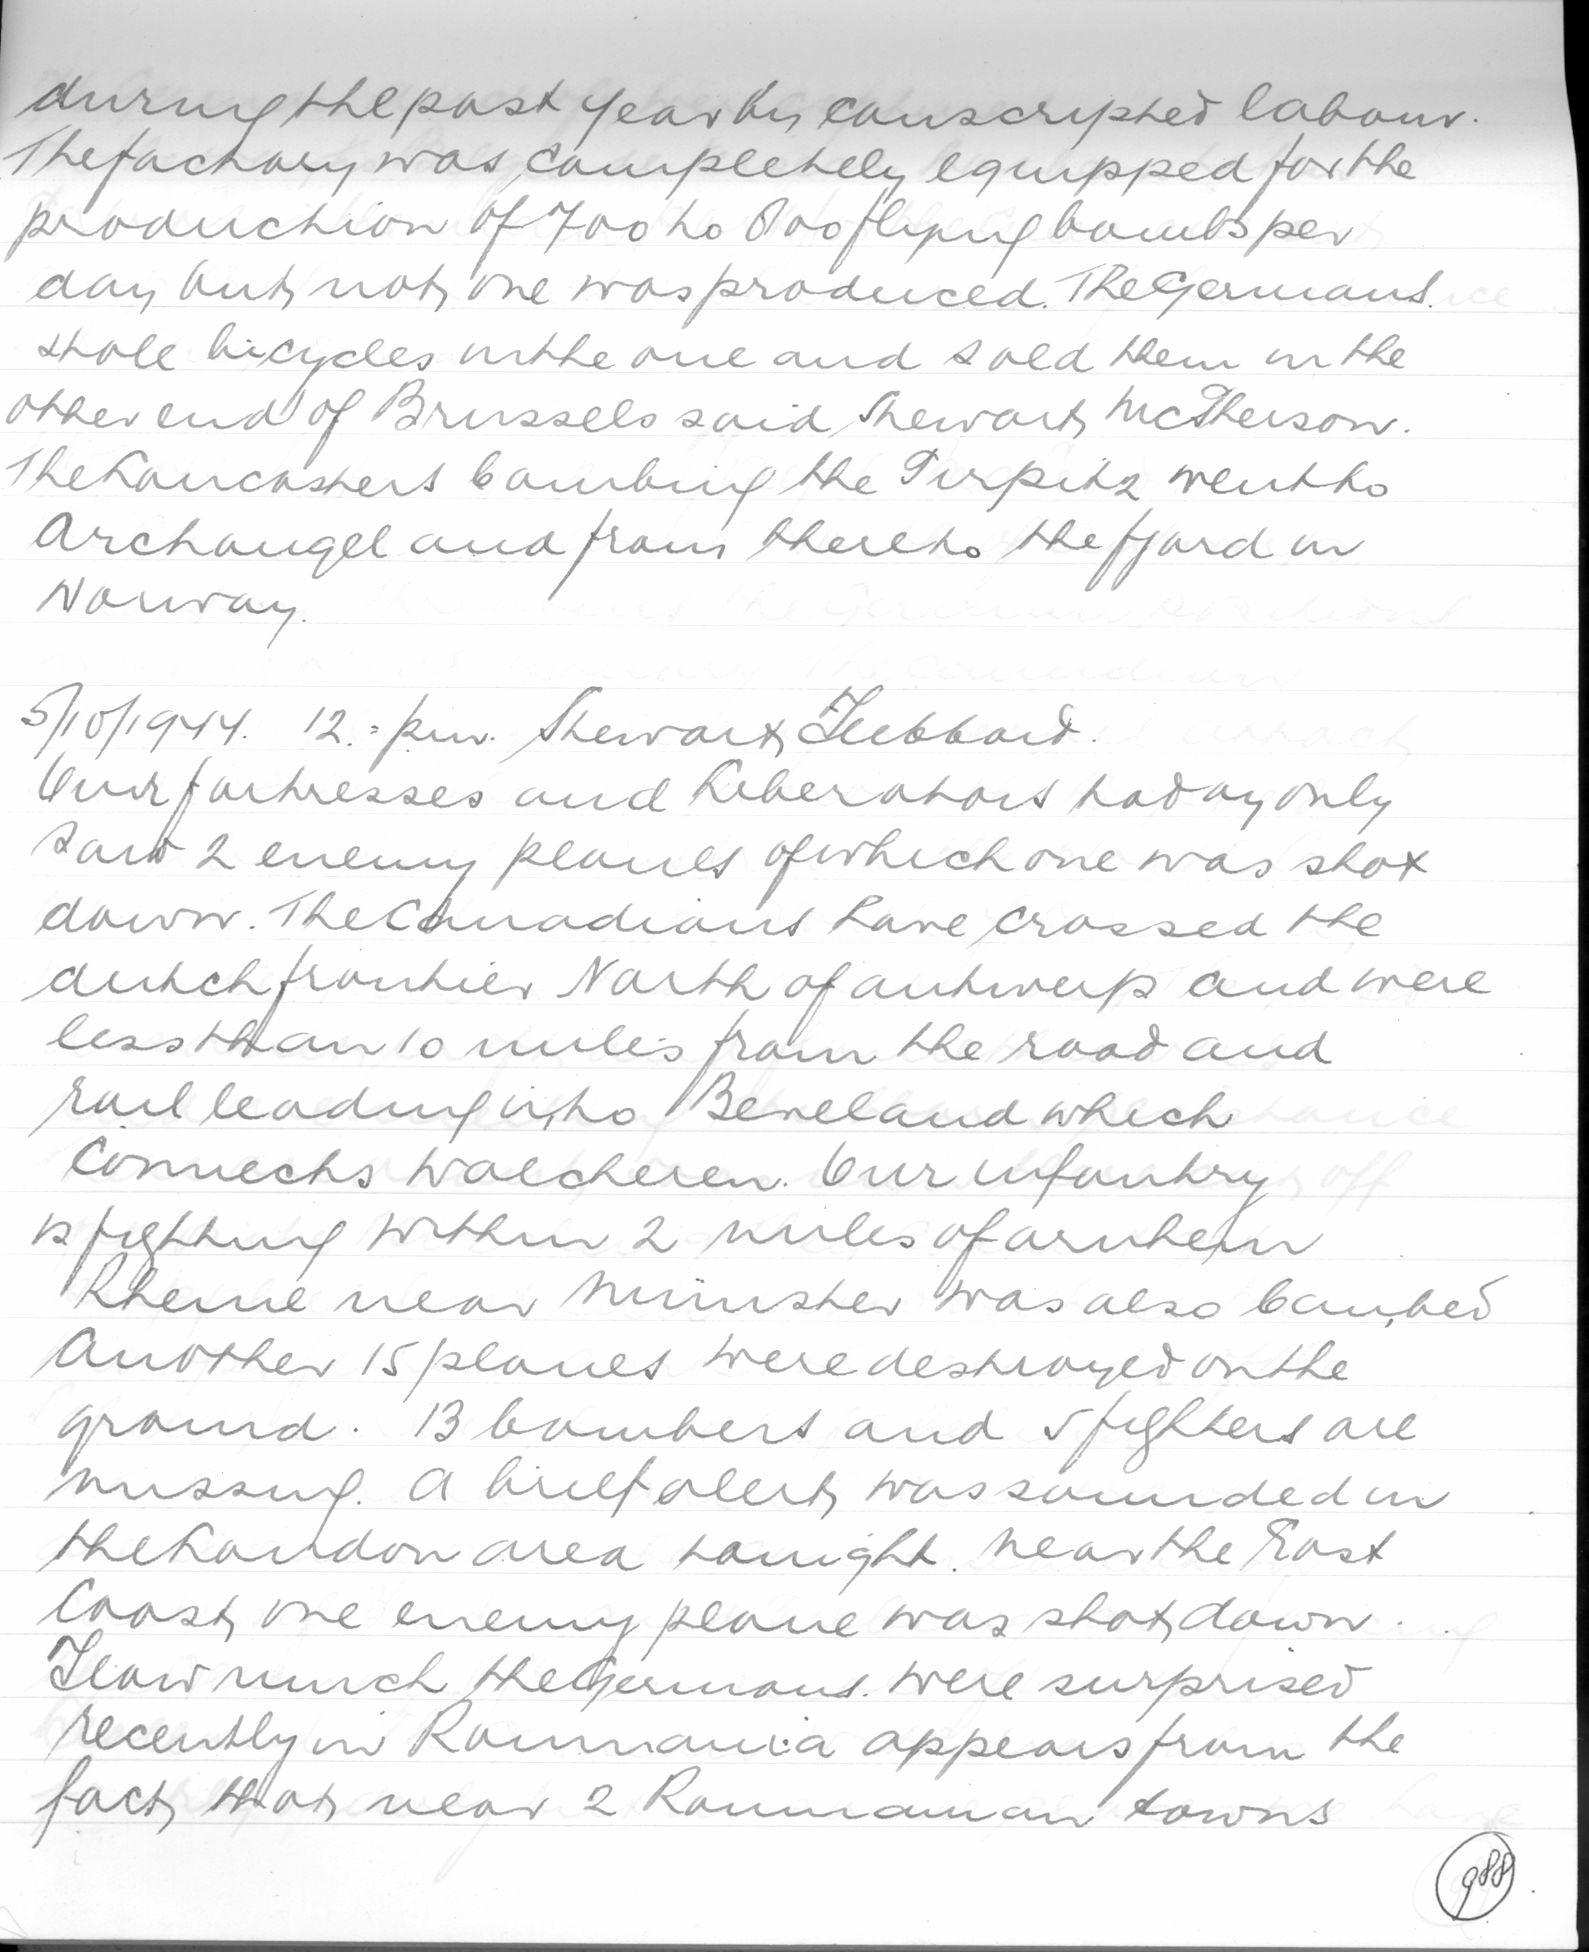 during the past year by conscripted labour.
The factory was completely equipped for the
production of 700 to 800 flying bombs per
day but not one was produced. The Germans
stole bicycles in the one and sold them in the
other end of Brussels said Stewart McPherson.
The Lancasters bombing the Tirpitz went to
Archangel and from there to the fjord in
Norway.
5/10/1944. 12.= pm. Stewart Hebbard.
Our fortresses and Liberators today only
saw 2 enemy planes of which one was shot
down. The Canadians have crossed the
dutch frontier North of antwerp and were
less than 10 miles from the road and
rail leading into Beveland which
Connects Walcheren. Our infantry
is fighting within 2 miles of arnhem
Rheine near Münster was also bombed
Another 15 planes were destroyed on the
ground. 13 bombers and 5 fighters are
missing. A brief alert was sounded in
the London area tonight. Near the East
Coast one enemy plane was shot down.
How much the Germans were surprised
recently in Roumania appears from the
fact that near 2 Roumanian towns
988